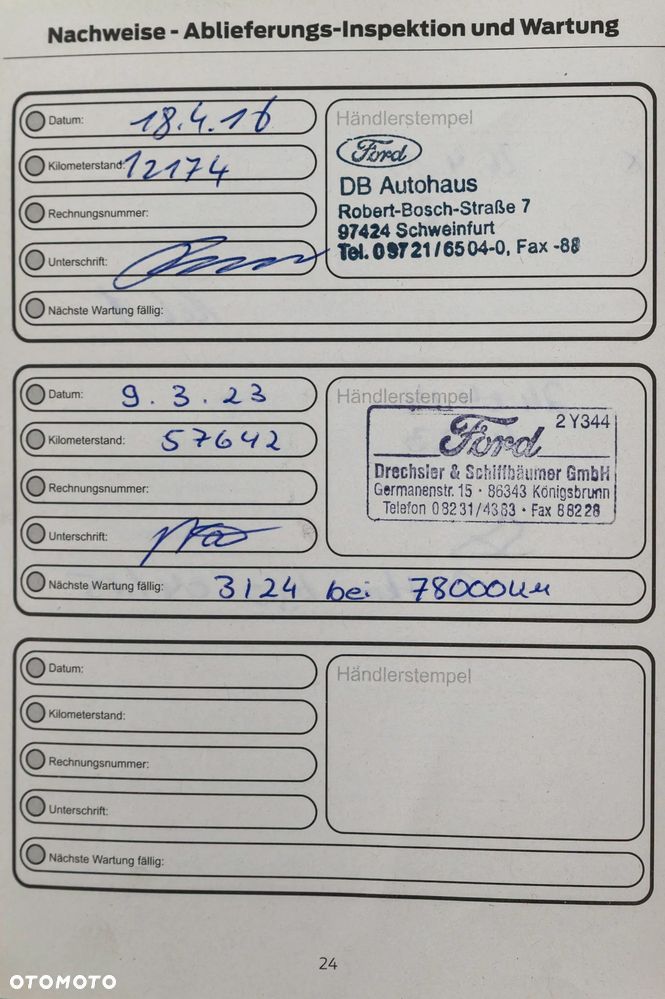 Nachweise - Ablieferungs-Inspektion und Wartung
Datum: 18.4.16
Kilometerstand: 12174
Rechnungsnummer:
Unterschrift:
Nächste Wartung fällig:
Händlerstempel
Ford
DB Autohaus
Robert-Bosch-Straße 7
97424 Schweinfurt
Tel. 09721/6504-0, Fax -88
Datum: 9.3.23
Kilometerstand: 57642
Rechnungsnummer:
Unterschrift:
Nächste Wartung fällig: 3/24 bei 78000km
Händlerstempel
Ford 2Y344
Drechsler & Schiffbäumer GmbH
Germanenstr. 15 · 86343 Königsbrunn
Telefon 08231/4363 · Fax 88228
Datum:
Kilometerstand:
Rechnungsnummer:
Unterschrift:
Nächste Wartung fällig:
Händlerstempel
24
OTOMOTO